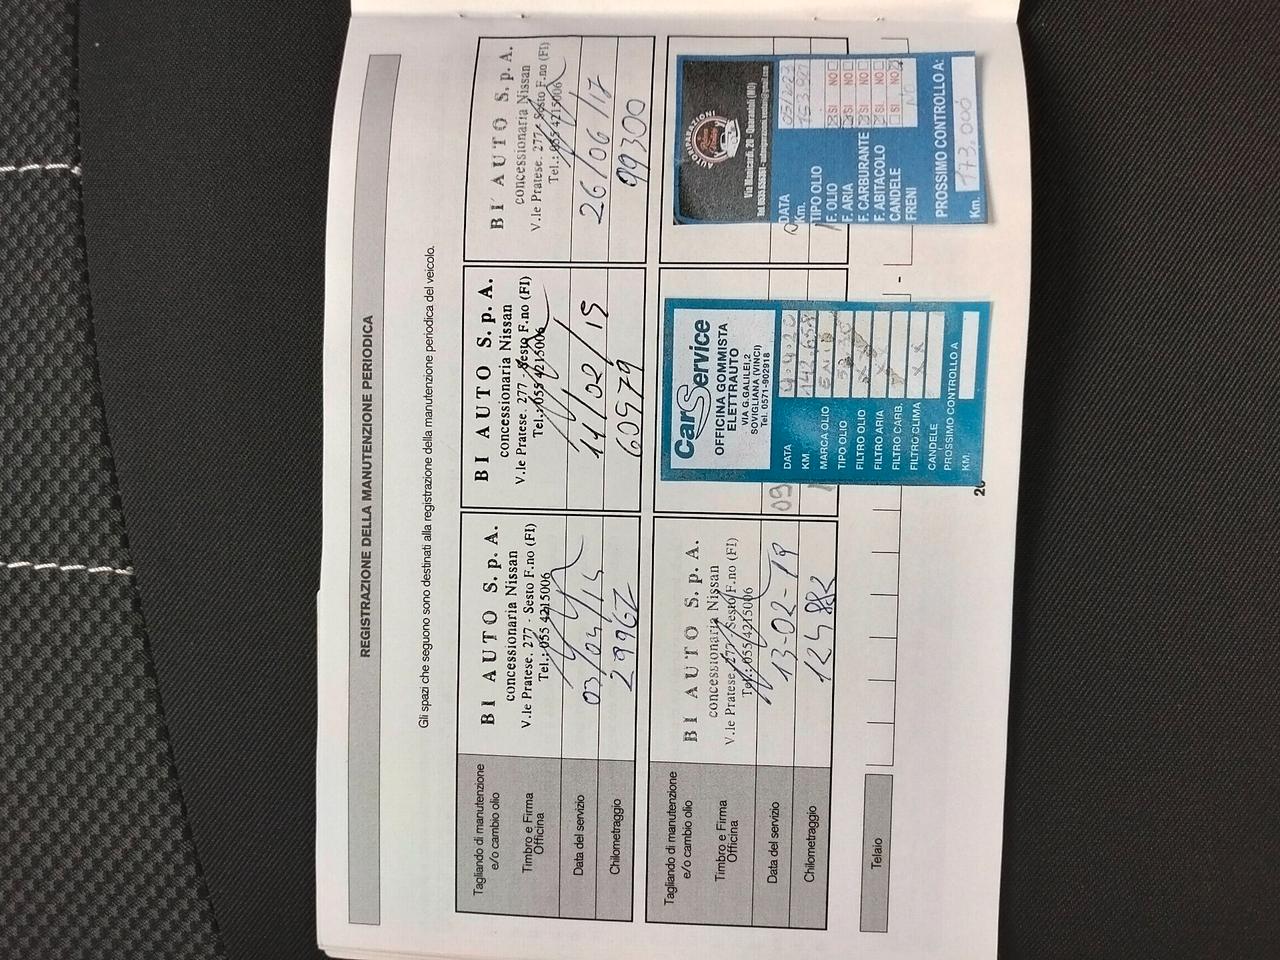 REGISTRAZIONE DELLA MANUTENZIONE PERIODICA
Gli spazi che seguono sono destinati alla registrazione della manutenzione periodica del veicolo.
Tagliando di manutenzione
e/o cambio olio
Timbro e Firma
Officina
Data del servizio
Chilometraggio
BI AUTO S.p.A.
concessionaria Nissan
V.le Pratese. 277 - Sesto F.no (FI)
Tel.: 055 4215006
03/04/14
29967
BI AUTO S.p.A.
concessionaria Nissan
V.le Pratese. 277 - Sesto F.no (FI)
Tel.: 055 4215006
11/02/15
60979
BI AUTO S.p.A.
concessionaria Nissan
V.le Pratese. 277 - Sesto F.no (FI)
Tel.: 055 4215006
26/06/17
99300
Tagliando di manutenzione
e/o cambio olio
Timbro e Firma
Officina
Data del servizio
Chilometraggio
BI AUTO S.p.A.
concessionaria Nissan
V.le Pratese. 277 - Sesto F.no (FI)
Tel.: 055 4215006
13-02-19
09
CarService
OFFICINA GOMMISTA
ELETTRAUTO
VIA G.GALILEI,2
SOVIGLIANA (VINCI)
Tel. 0571-902918
DATA
KM.
MARCA OLIO ENI
TIPO OLIO
FILTRO OLIO
FILTRO ARIA
FILTRO CARB.
FILTRO CLIMA XX
CANDELE
PROSSIMO CONTROLLO A
KM.
AUTORIPARAZIONI
Via Manicardi, 20 - Quarantoli (MO)
DATA
Km.
TIPO OLIO
F. OLIO SI NO
F. ARIA SI NO
F. CARBURANTE SI NO
F. ABITACOLO SI NO
CANDELE SI NO
FRENI
PROSSIMO CONTROLLO A:
Km. 173.000
Telaio
-